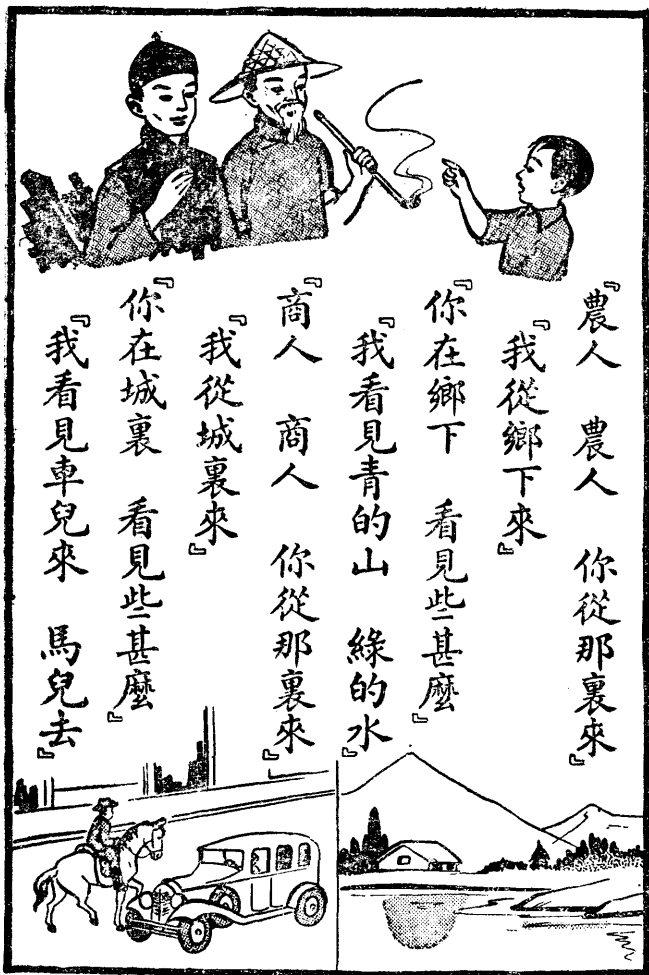 『農人　農人　你從那裏來』
『我從鄉下來』
『你在鄉下　看見些甚麼』
『我看見青的山　綠的水』
『商人　商人　你從那裏來』
『我從城裏來』
『你在城裏　看見些甚麼』
『我看見車兒來　馬兒去』